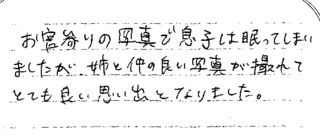 お宮参りの写真で息子は眠ってしまい
ましたが 姉と仲の良い写真が撮れて
とても良い思い出となりました。